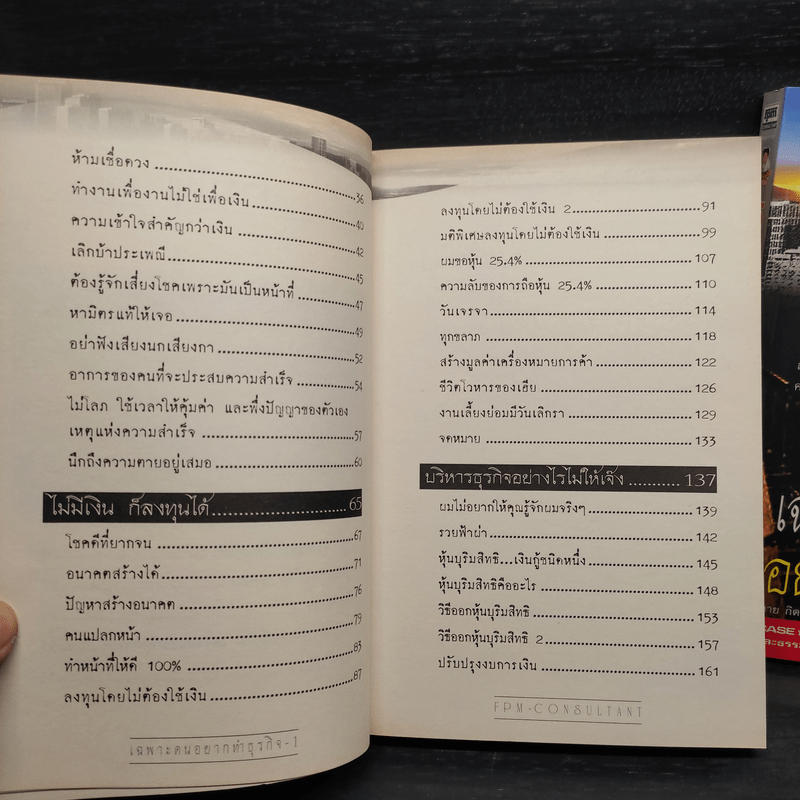 ห้ามเชื่อดวง....................36
ทำงานเพื่องานไม่ใช่เพื่อเงิน....................40
ความเข้าใจสำคัญกว่าเงิน....................42
เลิกบ้าประเพณี....................45
ต้องรู้จักเสี่ยงโชคเพราะมันเป็นหน้าที่....................47
หามิตรแท้ให้เจอ....................49
อย่าฟังเสียงนกเสียงกา....................52
อาการของคนที่จะประสบความสำเร็จ....................54
ไม่โลภ ใช้เวลาให้คุ้มค่า และพึ่งปัญญาของตัวเอง
เหตุแห่งความสำเร็จ....................57
นึกถึงความตายอยู่เสมอ....................60
ไม่มีเงิน ก็ลงทุนได้....................65
โชคดีที่ยากจน....................67
อนาคตสร้างได้....................71
ปัญหาสร้างอนาคต....................76
คนแปลกหน้า....................79
ทำหน้าที่ให้ดี 100%....................83
ลงทุนโดยไม่ต้องใช้เงิน....................87
เฉพาะคนอยากทำธุรกิจ-1
ลงทุนโดยไม่ต้องใช้เงิน 2....................91
มติพิเศษลงทุนโดยไม่ต้องใช้เงิน....................99
ผมขอหุ้น 25.4%....................107
ความลับของการถือหุ้น 25.4%....................110
วันเจรจา....................114
ทุกขลาภ....................118
สร้างมูลค่าเครื่องหมายการค้า....................122
ชีวิตโวหารของเฮีย....................126
งานเลี้ยงย่อมมีวันเลิกรา....................129
จดหมาย....................133
บริหารธุรกิจอย่างไรไม่ให้เจ๊ง....................137
ผมไม่อยากให้คุณรู้จักผมจริงๆ....................139
รวยฟ้าผ่า....................142
หุ้นบุริมสิทธิ...เงินกู้ชนิดหนึ่ง....................145
หุ้นบุริมสิทธิคืออะไร....................148
วิธีออกหุ้นบุริมสิทธิ....................153
วิธีออกหุ้นบุริมสิทธิ 2....................157
ปรับปรุงงบการเงิน....................161
FPM-CONSULTANT
CASE